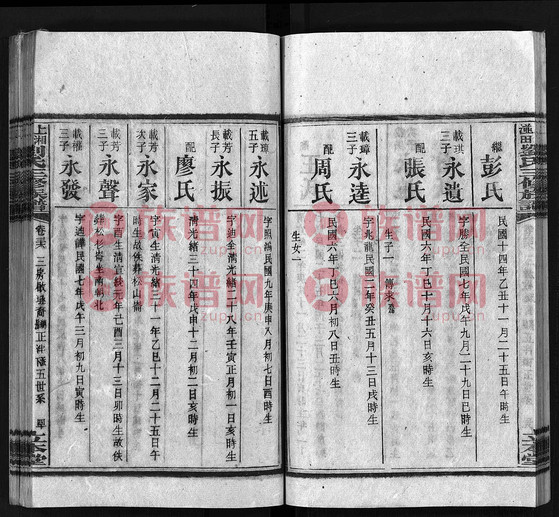 繼 彭氏 民國十四年乙丑十一月二十五日午時生
載琪三子 永遺 字勝全民國七年戊午九月二十九日巳時生
配 張氏 民國六年丁巳十月十六日亥時生
生子一 傳求
載璋三子 永逵 字兆龍民國二年癸丑五月十三日戌時生
配 周氏 民國六年丁巳六月初八日丑時生
生女一
載璋五子 永述 字照熙民國九年庚申八月初七日酉時生
載芳長子 永振 字迪全清光緒二十八年壬寅正月初一日亥時生
配 廖氏 清光緒三十四年戊申十二月初二日亥時生
載芳次子 永家 字寅生清光緒三十一年乙巳十二月二十五日午
時生故佚葬松山衝
載芳三子 永聲 字酉生清宣統元年己酉三月十三日卯時生故佚
葬松杉塆坐南朝北
三子 永發 字迪祥民國七年戊午三月初九日寅時生
上湘 三修族譜 卷三 三房 五世系
立本堂
族谱网
zupu.cn